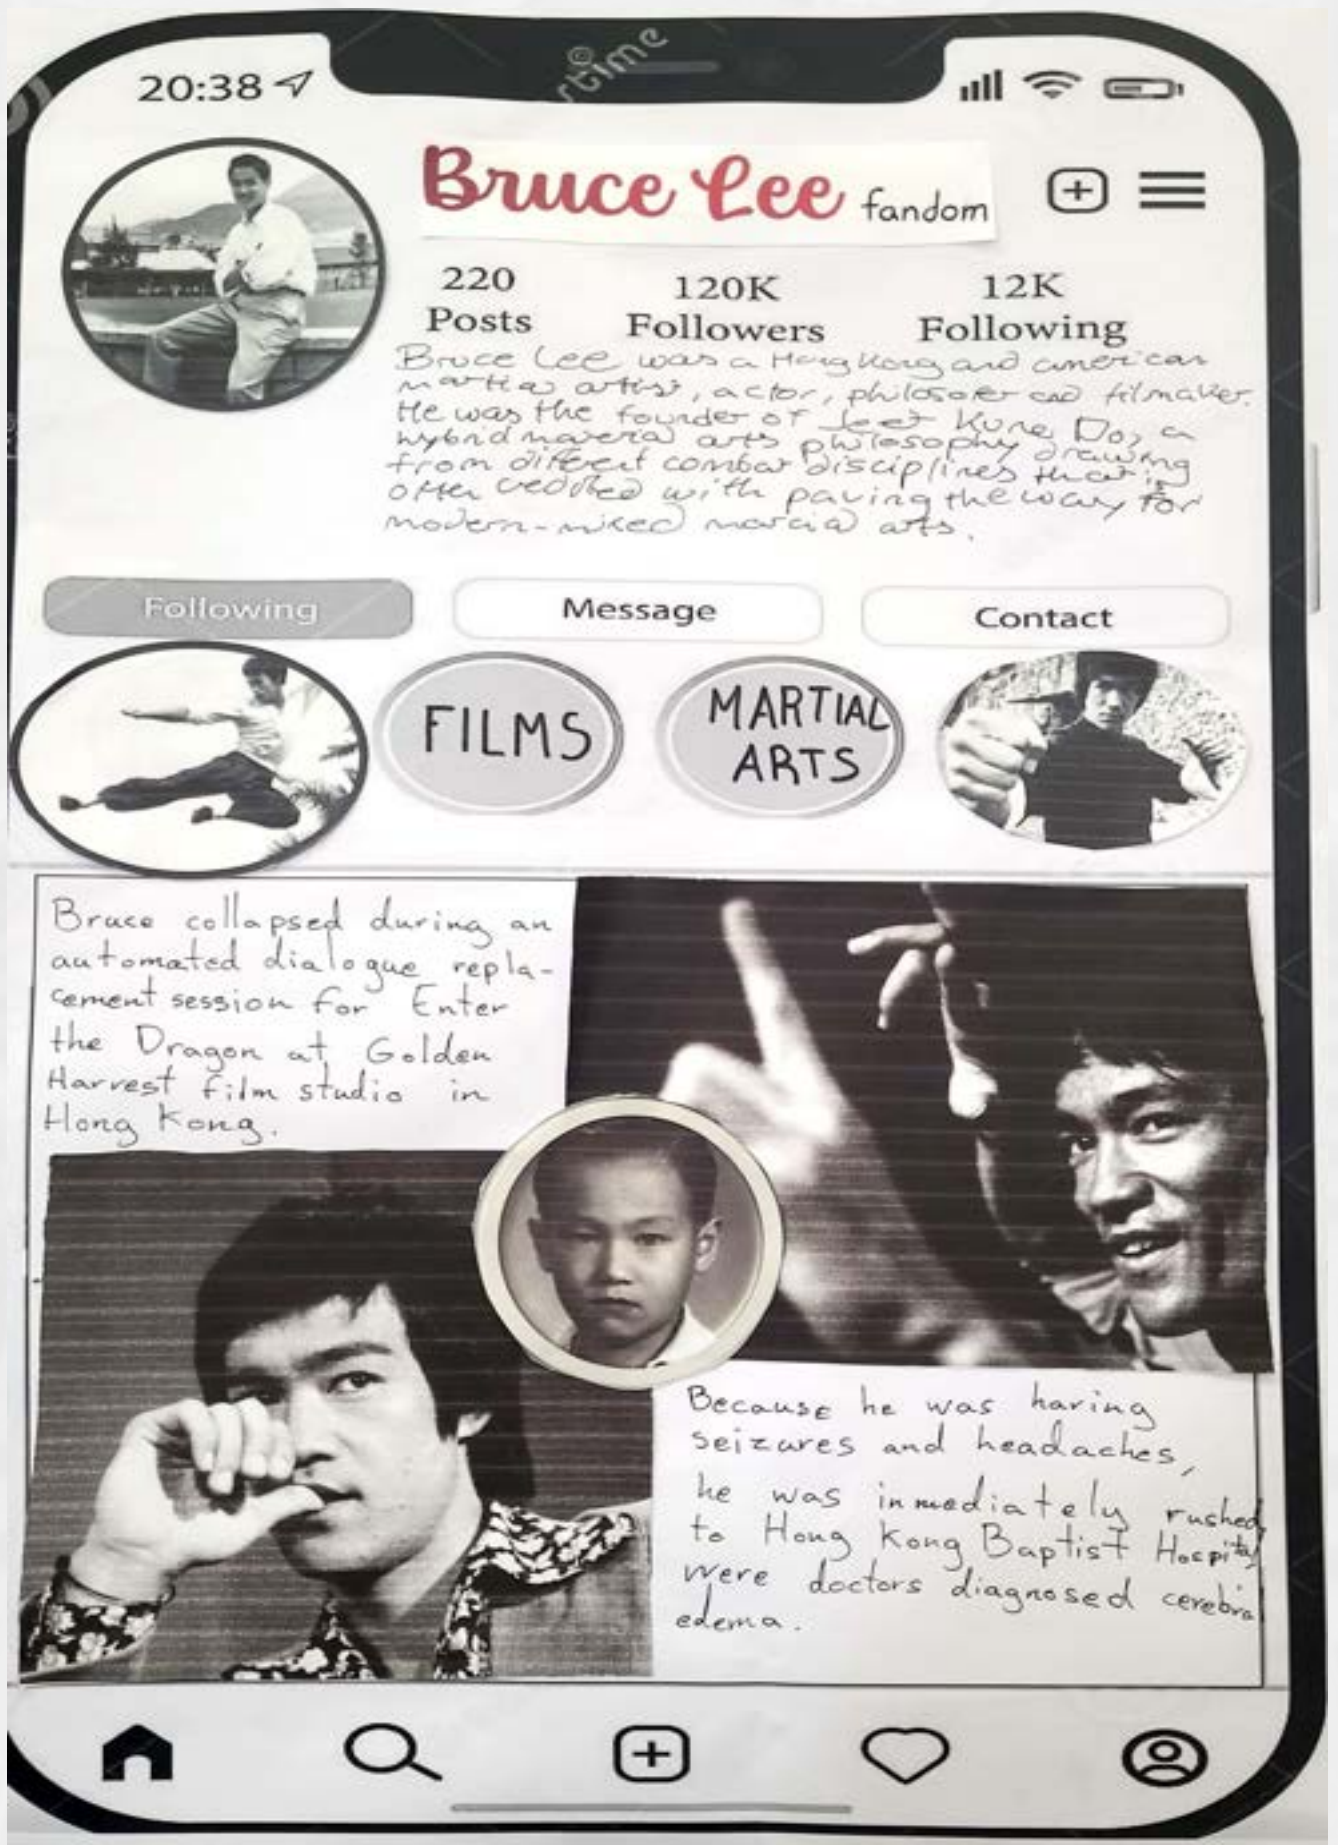 rtime
20:38
Bruce Lee fandom
220 Posts
120K Followers
12K Following
Bruce Lee was a Hong Kong and american
martial artist, actor, philosofer and filmaker.
He was the founder of Jeet Kune Do, a
hybrid marcial arts philosophy drawing
from different combat disciplines that is
often credited with paving the way for
modern-mixed marcial arts.
Following
Message
Contact
FILMS
MARTIAL
ARTS
Bruce collapsed during an
automated dialogue repla-
cement session for Enter
the Dragon at Golden
Harvest film studio in
Hong Kong.
Because he was having
seizures and headaches,
he was inmediately rushed
to Hong Kong Baptist Hospital
were doctors diagnosed cerebral
edema.